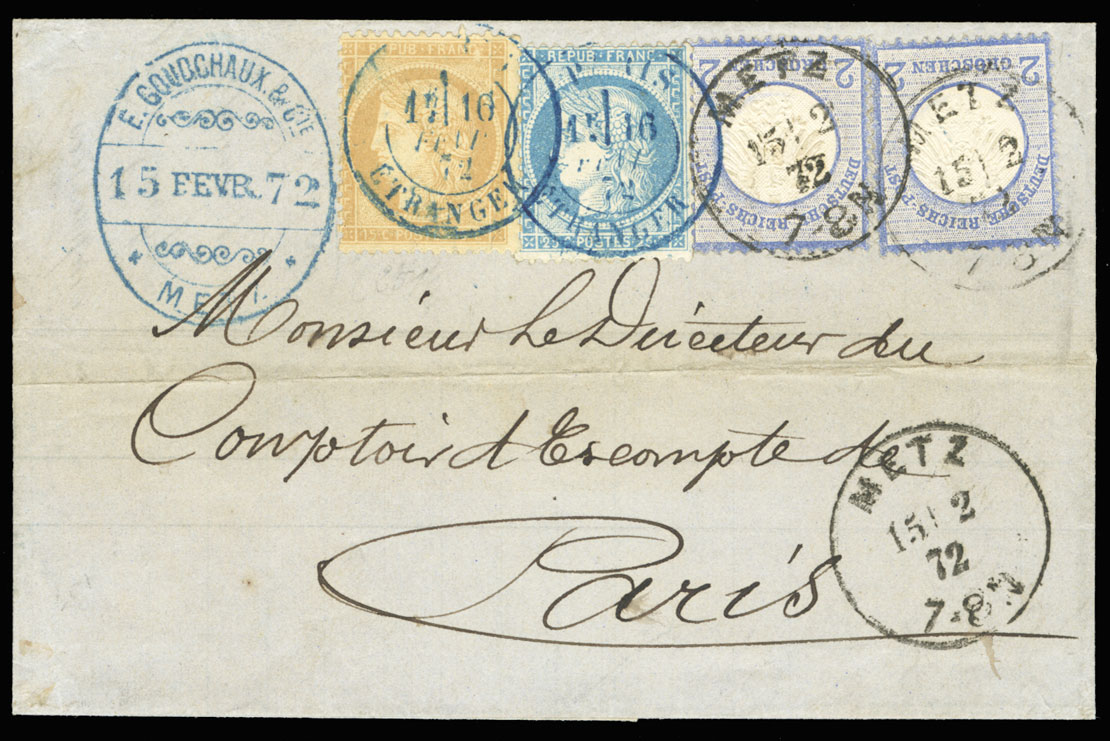 E. GOUDCHAUX. & CIE
15 FEVR. 72
METZ.
REPUB. FRANC.
16
72
ETRANGER
15 C. POSTES
REPUB. FRANC.
16
ETRANGER
25 C. POSTES
2 GROSCHEN 2
DEUTSCHE REICHS-POST
METZ
15 2
72
7-8 N
2 GROSCHEN 2
DEUTSCHE REICHS-POST
METZ
15 2
7-8 N
Monsieur le Directeur du
Comptoir d'Escompte de
Paris
METZ
15 2
72
7-8 N